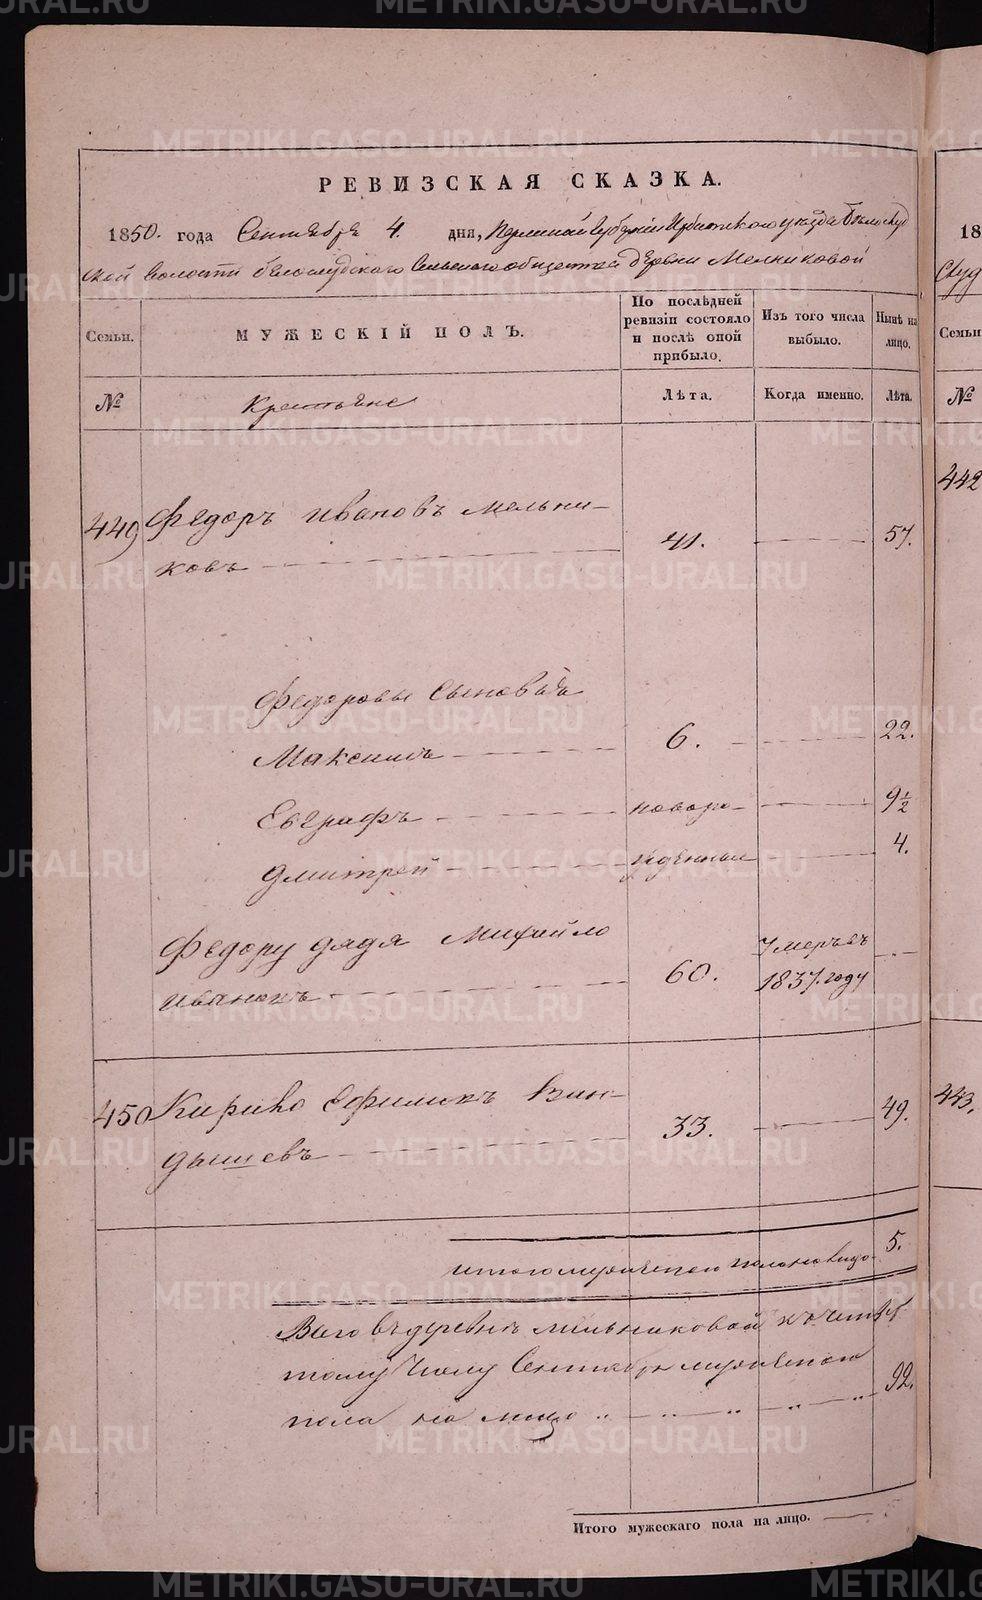 РЕВИЗСКАЯ СКАЗКА.
1850. года Сентября 4. дня, Пермской Губернiи Ирбитского уезда Белослуд
ской волости белослудского Сельского общества деревни Мельниковой
Семьи.
МУЖЕСКІЙ ПОЛЪ.
По послѣдней ревизіи состояло и послѣ оной прибыло.
Изъ того числа выбыло.
Нынѣ на лицо.
№
Крестьяне
Лѣта.
Когда именно.
Лѣта.
449 Федоръ Ивановъ Мельни-
ковъ 41. 57.
Федоровы Сыновья
Максимъ 6. 22.
Евграфъ новоро- 9½
Дмитрей жденныи 4.
Федору дядя Михайло
Ивановъ 60. Умеръ въ 1837. году
450 Кирило Ефимовъ Вин-
дышевъ 33. 49.
итого мужеского пола на лицо 5.
Всего въ деревне Мельниковой къ четвер
тому числу Сентября мужеского
пола на лицо 92.
Итого мужескаго пола на лицо. 5
18
Слуд
Семьи
№
442
443.
METRIKI.GASO-URAL.RU